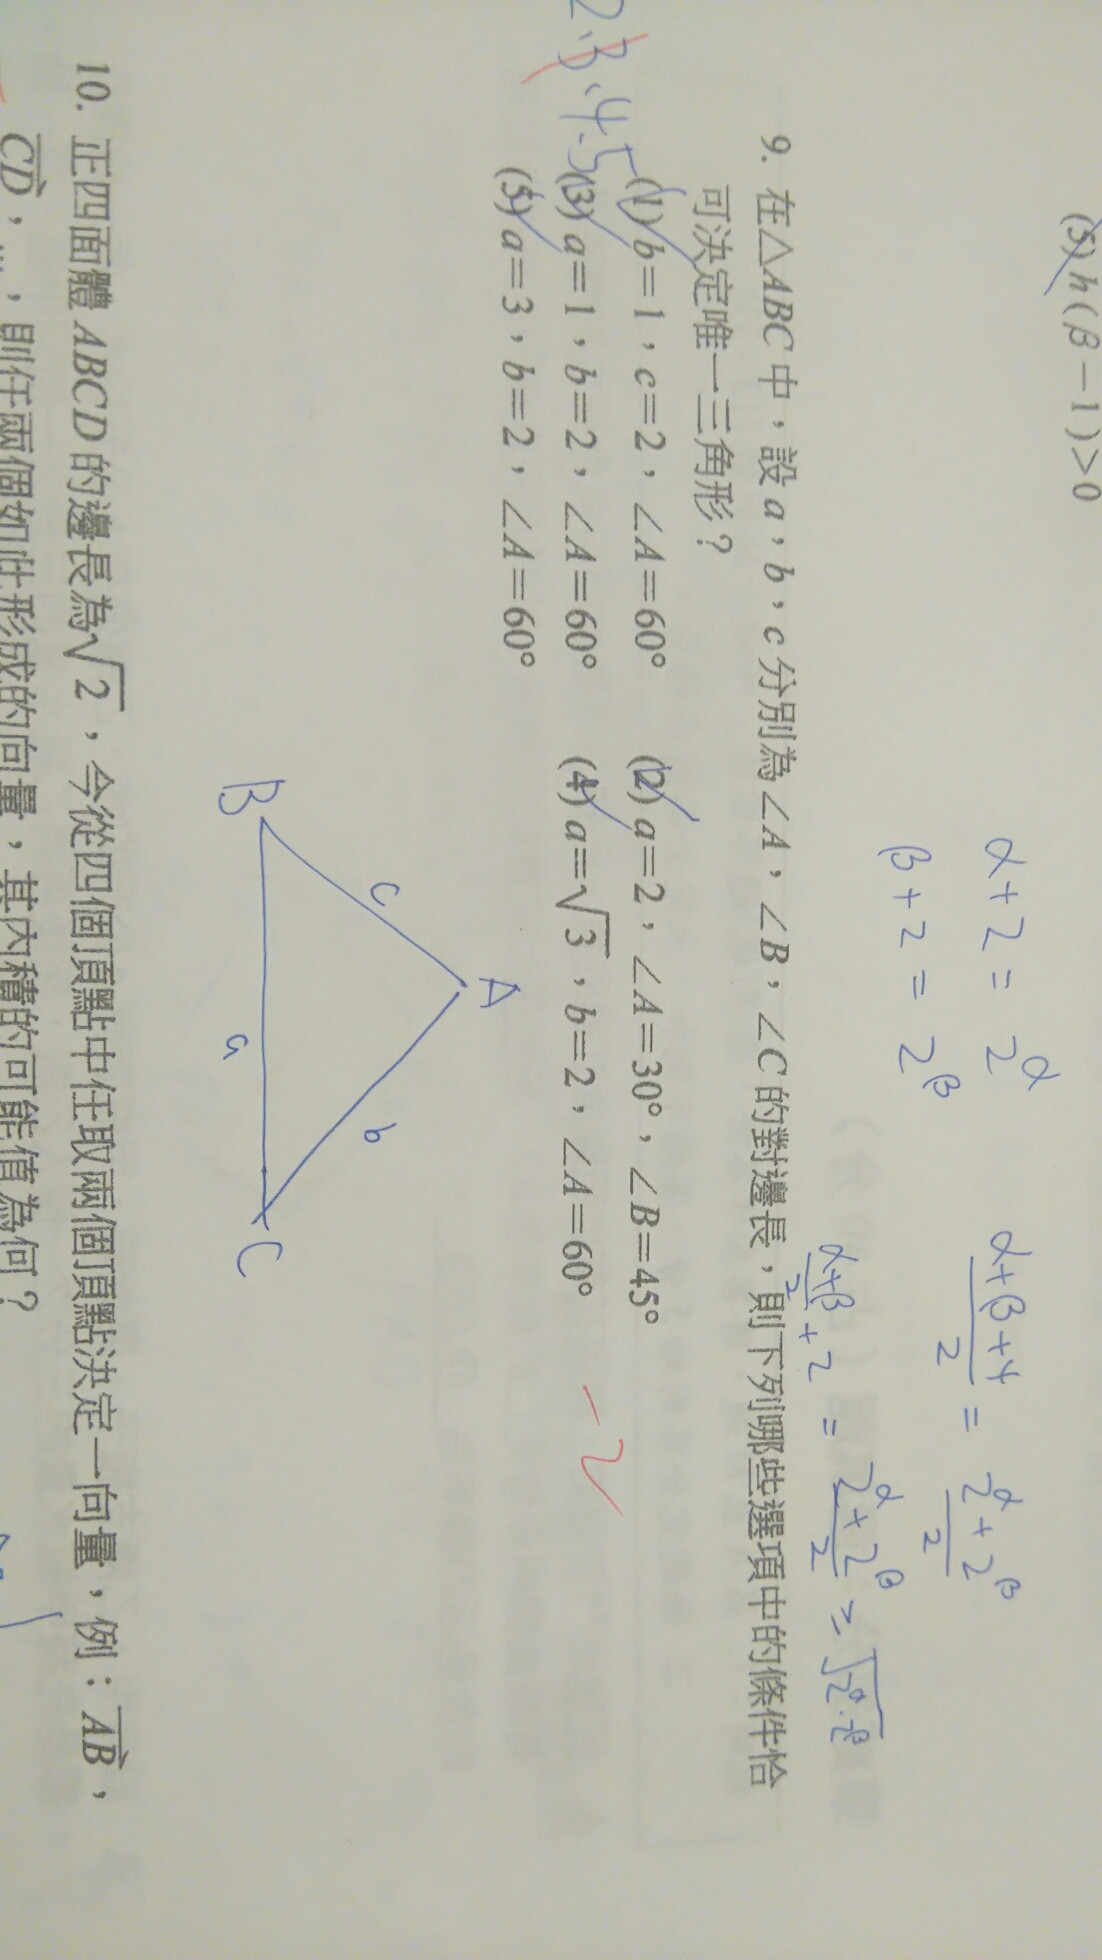 (5) h(β−1)>0
α+2 = 2^α
β+2 = 2^β
(α+β+4)/2 = (2^α+2^β)/2
(α+β)/2 + 2 = (2^α+2^β)/2 ≥ √(2^α·2^β)
9. 在△ABC中，設a，b，c分別為∠A，∠B，∠C的對邊長，則下列哪些選項中的條件恰
可決定唯一三角形？
2.3.4.5
(1) b=1，c=2，∠A=60° (2) a=2，∠A=30°、∠B=45°
(3) a=1，b=2，∠A=60° (4) a=√3，b=2，∠A=60°
(5) a=3，b=2，∠A=60°
−2
A
c b
B a C
10. 正四面體ABCD的邊長為√2，今從四個頂點中任取兩個頂點決定一向量，例：AB，
CD，…，則任兩個如此形成的向量，其內積的可能值為何？